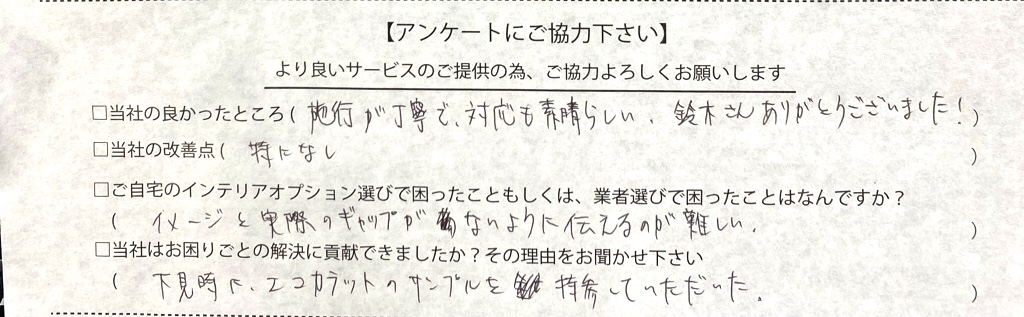 【アンケートにご協力下さい】
より良いサービスのご提供の為、ご協力よろしくお願いします
□当社の良かったところ( 施行が丁寧で、対応も素晴らしい、鈴木さんありがとうございました! )
□当社の改善点( 特になし )
□ご自宅のインテリアオプション選びで困ったこともしくは、業者選びで困ったことはなんですか?
( イメージと実際のギャップがないように伝えるのが難しい。 )
□当社はお困りごとの解決に貢献できましたか?その理由をお聞かせ下さい
( 下見時に、エコカラットのサンプルを持参していただいた。 )